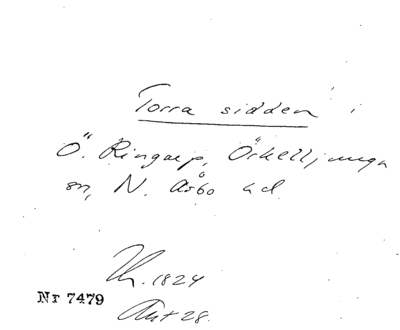 Torra sidden i
Ö. Ringarp, Örkelljunga
sn, N. Åsbo hd.
1824
Nr 7479
Akt 28.